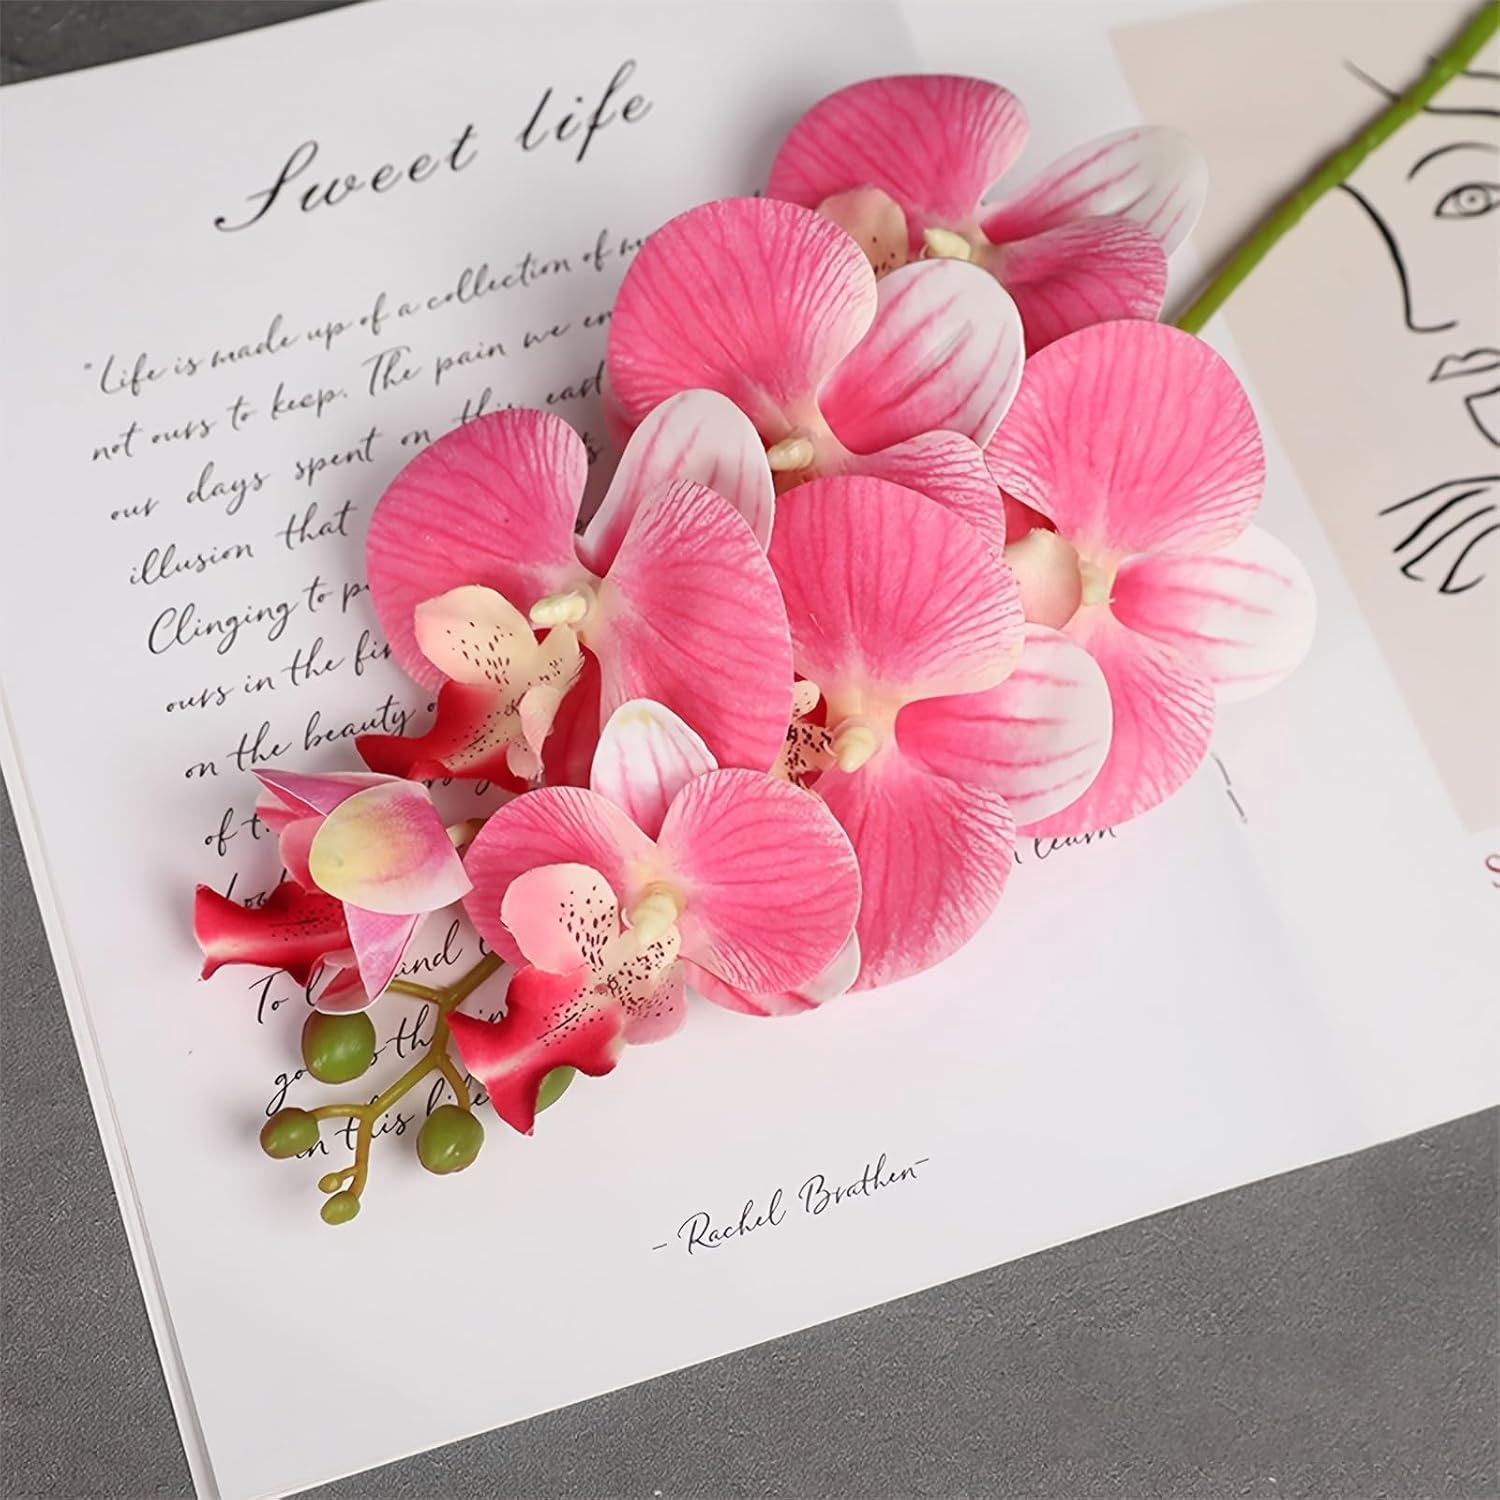 Sweet life
"Life is made up of a collection of m
not ours to keep. The pain we en
our days spent on this eart
illusion that
Clinging to p
ours in the fir
on the beauty o
of t
To l and
go th in
in this life
learn
- Rachel Brathen -
S